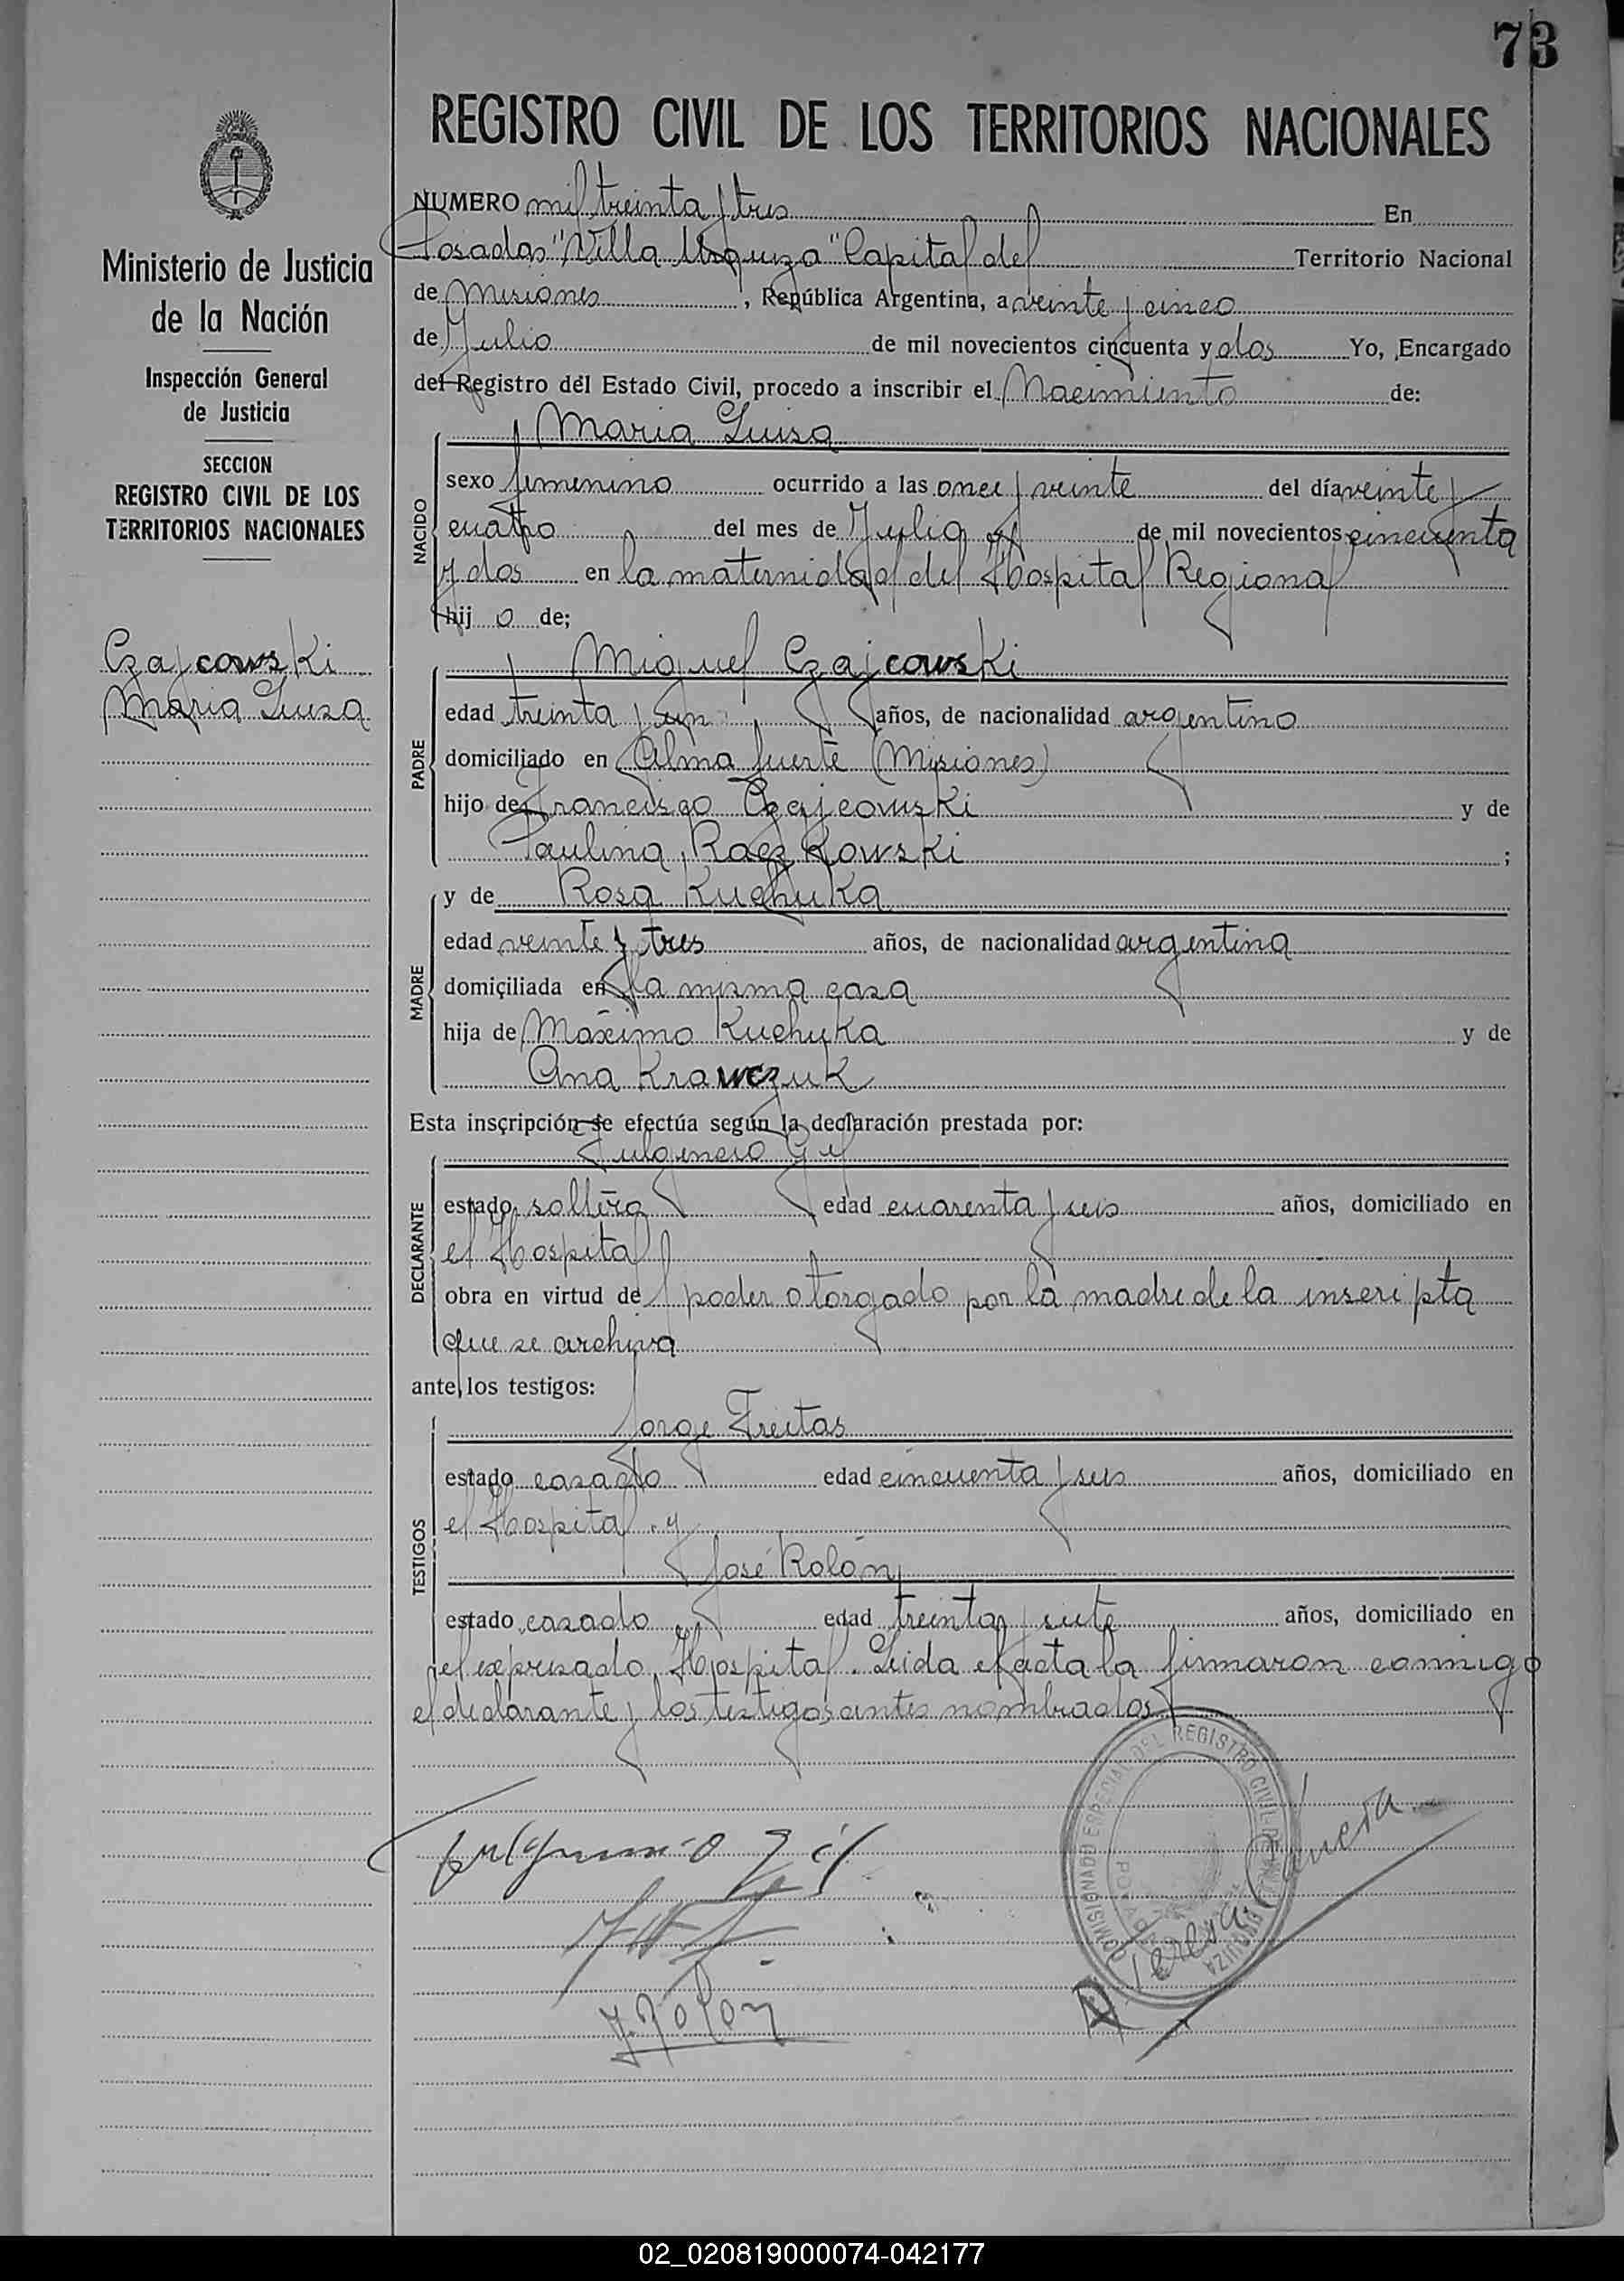 73
REGISTRO CIVIL DE LOS TERRITORIOS NACIONALES
Ministerio de Justicia
de la Nación
Inspección General
de Justicia
SECCION
REGISTRO CIVIL DE LOS
TERRITORIOS NACIONALES
Czajcowski
Maria Luisa
NUMERO mil treinta y tres En
Posadas "Villa Urquiza" Capital del Territorio Nacional
de Misiones, República Argentina, a veinte y cinco
de Julio de mil novecientos cincuenta y dos Yo, Encargado
del Registro del Estado Civil, procedo a inscribir el Nacimiento de:
NACIDO
Maria Luisa
sexo femenino ocurrido a las once y veinte del día veinte y
cuatro del mes de Julio de mil novecientos cincuenta
y dos en la maternidad del Hospital Regional
hijo de;
PADRE
Miguel Czajcowski
edad treinta y un años, de nacionalidad argentino
domiciliado en Alma fuerte (Misiones)
hijo de Francisco Czajcowski y de
Paulina Raczkowski ;
MADRE
y de Rosa Kuchuka
edad veinte y tres años, de nacionalidad argentina
domiciliada en la misma casa
hija de Máximo Kuchuka y de
Ana Krawczuk
Esta inscripción se efectúa según la declaración prestada por:
DECLARANTE
Fulgencio Gil
estado soltero edad cuarenta y seis años, domiciliado en
el Hospital
obra en virtud del poder otorgado por la madre de la inscripta
que se archiva
ante los testigos:
TESTIGOS
Jorge Freitas
estado casado edad cincuenta y seis años, domiciliado en
el Hospital y
José Rolón
estado casado edad treinta y siete años, domiciliado en
el expresado Hospital. Leida el acta la firmaron conmigo
el declarante y los testigos antes nombrados
COMISIONADO ESPECIAL DEL REGISTRO CIVIL
URQUIZA
Fulgencio Gil
J. Rolon
Teresa
02_020819000074-042177